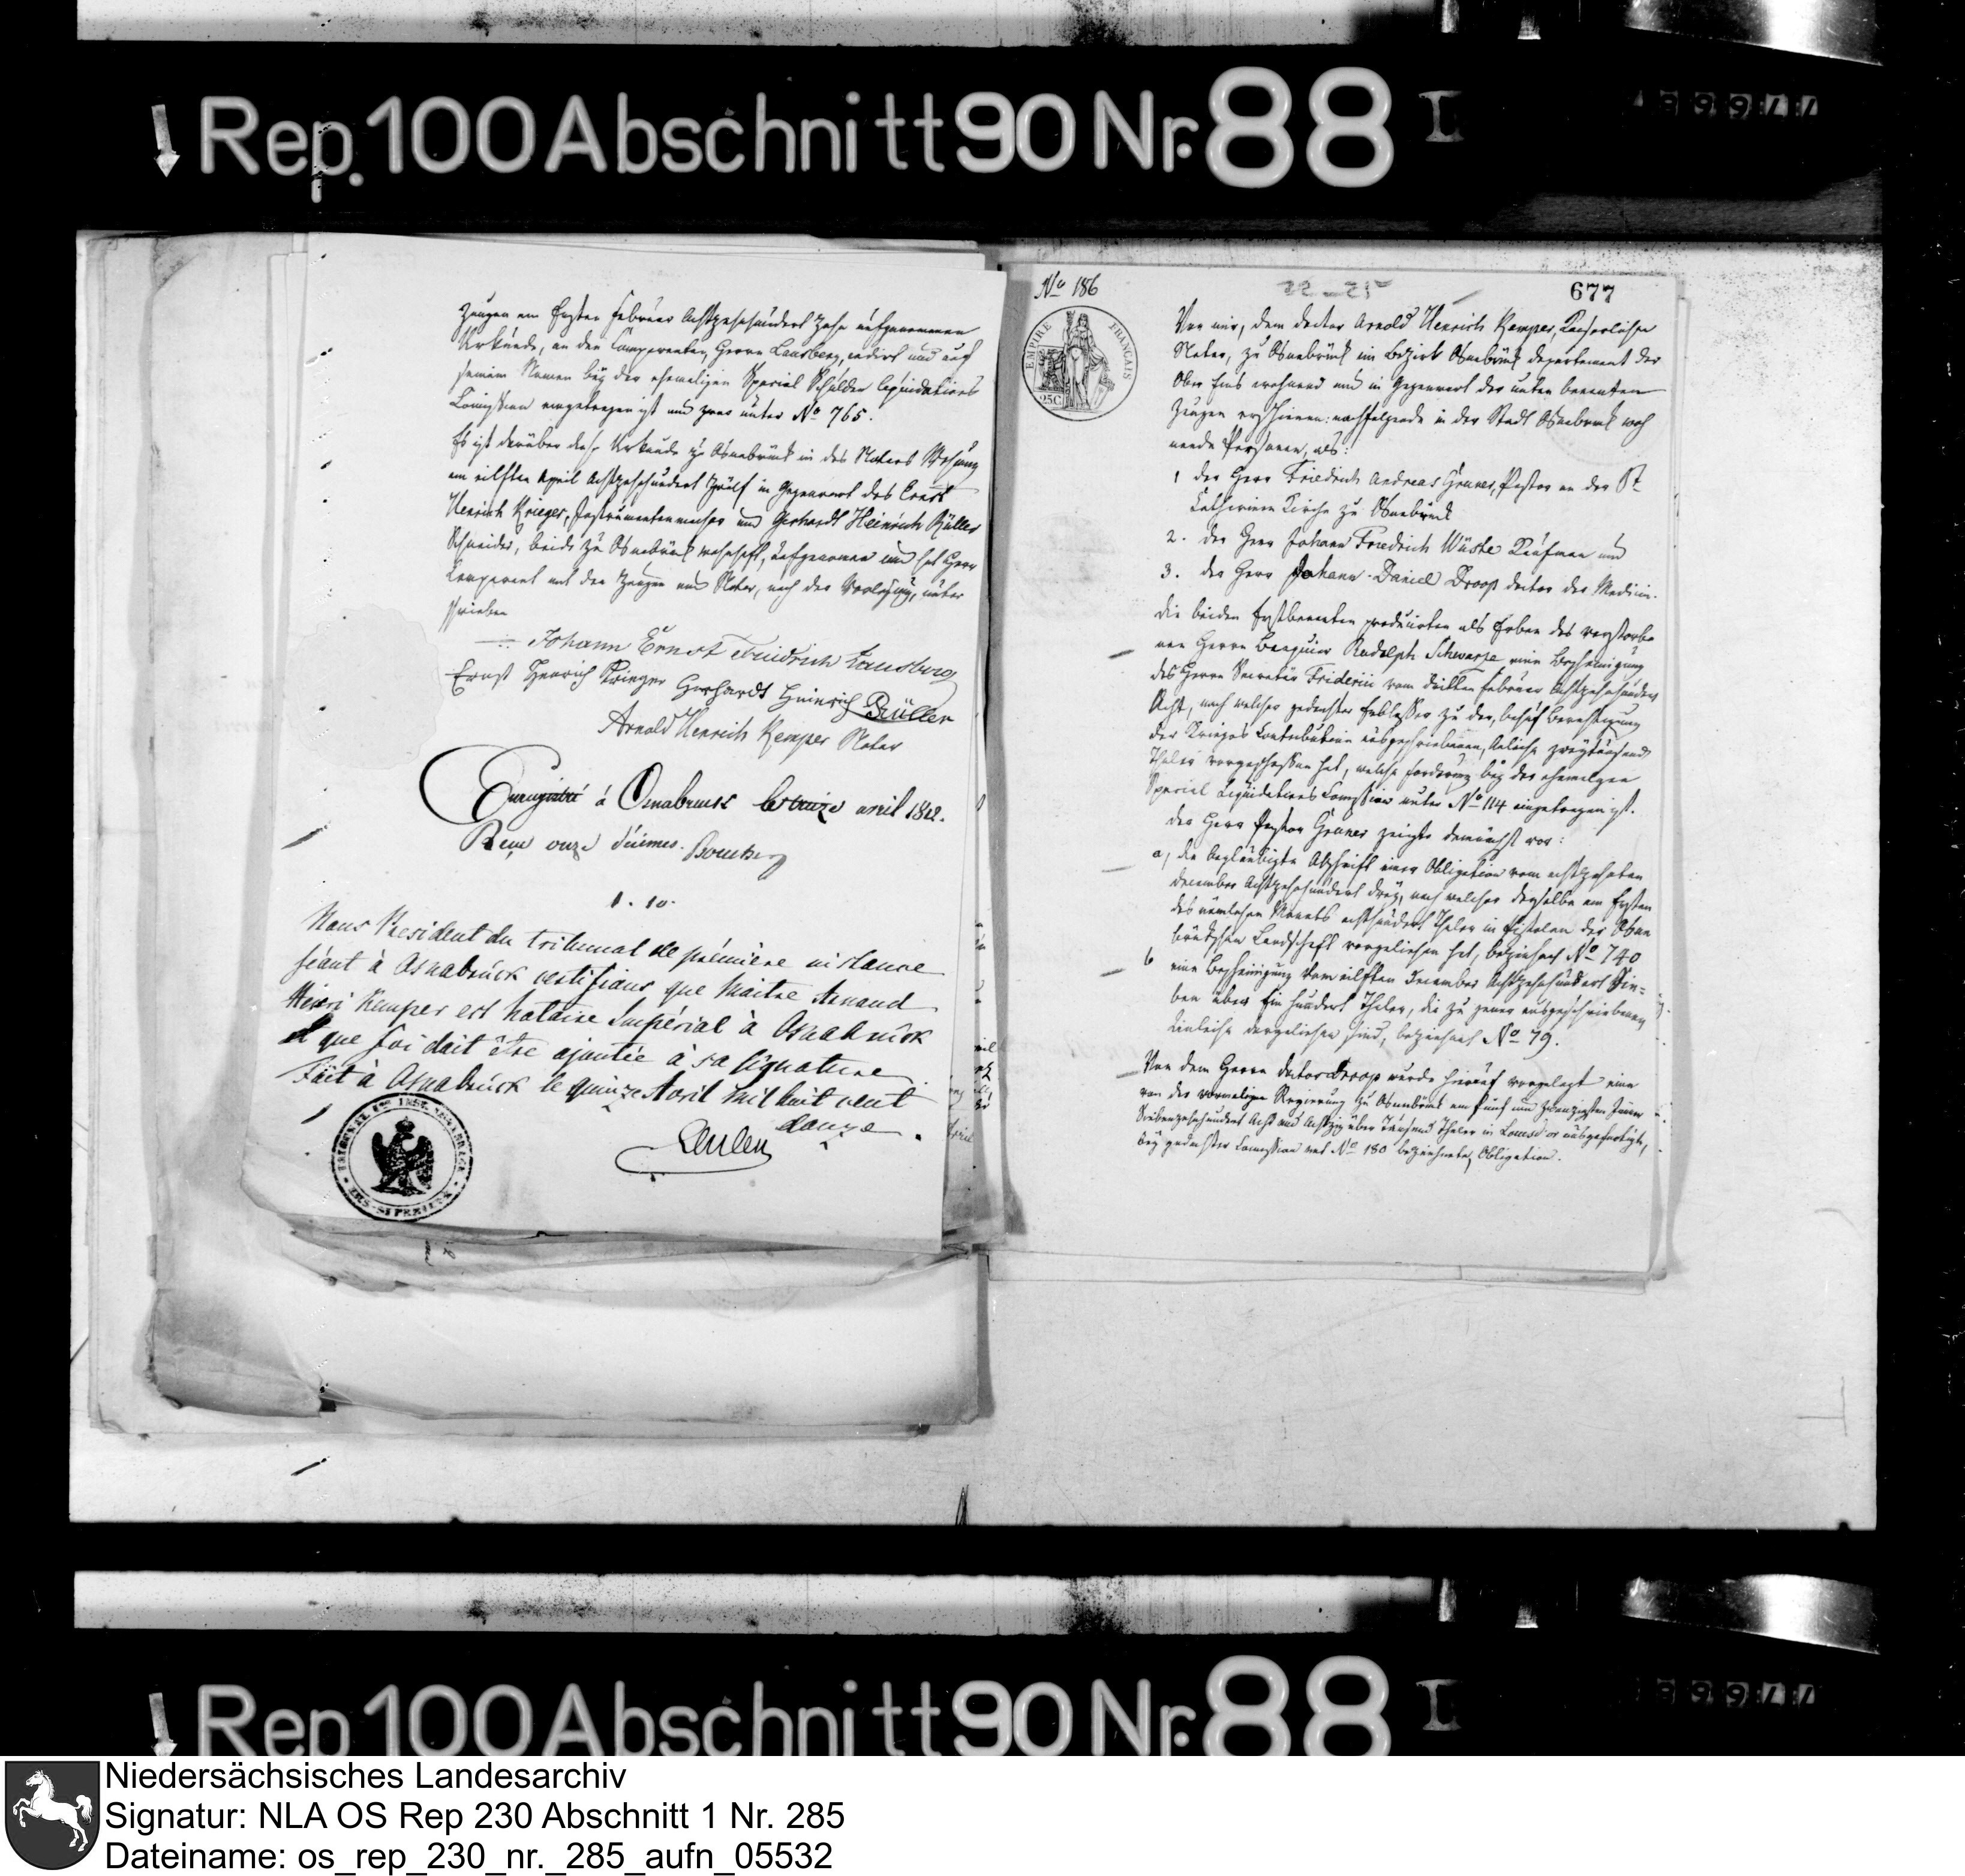 Rep. 100 Abschnitt 90 Nr. 88 I
Zeugen am Ersten Februar Achtzehnhundert Zehn aufgenommen
Urkunde, an den Comparenten, Herrn Lansberg, cedirt und auf
seinen Namen bey der ehemaligen Special Schulden Liquidations
Commission eingetragen ist und zwar unter No 765.
Es ist darüber diese Urkunde zu Osnabrück in des Notars Wohnung
am eilften April Achtzehnhundert Zwölf in Gegenwart des Ernst
Henrich Krieger, Instrumentenmacher und Gerhardt Heinrich Rüller
Schneider, beide zu Osnabrück wohnhaft, aufgenommen und hat Herr
Comparent mit den Zeugen und Notar, nach der Vorlesung, unter
schrieben
Johann Ernst Friedrich Lansberg
Ernst Henrich Krieger Gerhardt Heinrich Rüller
Arnold Henrich Kemper Notar
Enregistré à Osnabruck le onze avril 1812.
Reçu onze décimes.
1. 10.
Nous President du tribunal de première instance
séant à Osnabrück certifions que Maitre Arnaud
Henri Kemper est Notaire Impérial à Osnabrück
et que foi doit être ajoutée à sa signature.
Fait à Osnabrück le quinze Avril mil huit cent
douze.
No 186
677
EMPIRE FRANCAIS
25C
Vor mir, dem doctor Arnold Henrich Kemper, Kaiserlicher
Notar, zu Osnabrück im Bezirk Osnabrück departement der
Ober Ems wohnend und in Gegenwart der unten benannten
Zeugen erschienen: nachfolgende in der Stadt Osnabrück woh
nende Personen, als:
1 der Herr Friedrich Andreas Gruner, Pastor an der St
Catharinen Kirche zu Osnabrück
2. der Herr Johann Friedrich Wüste Kaufman und
3. der Herr Johann Daniel Droop doctor der Medicin.
die beiden Erstbenannten producirten als Erben des verstorbe
nen Herrn Banquier Rudolph Schwartze eine Bescheinigung
des Herrn Secretär Friderici vom dritten Februar Achtzehnhundert
Acht, nach welcher gedachter Erblasser zu der, behuf Berichtigung
der Kriegs Contribution ausgeschriebenen, Anleihe zweytausend
Thaler vorgeschossen hat, welche Forderung bey der ehemaligen
Special Liquidations Commission unter No 114 eingetragen ist.
der Herr Pastor Gruner zeigte demnächst vor:
a, die beglaubigte Abschrift einer Obligation vom achtzehnten
December Achtzehnhundert drey, nach welcher derselbe am Ersten
des nämlichen Monats achthundert Thaler in Pistolen der Osna
brückschen Landschaft vorgeliehen hat, bezeichnet No 740
b eine Bescheinigung vom eilften December Achtzehnhundert Sie=
ben über Ein hundert Thaler, die zu jener ausgeschriebenen
Anleihe dargeliehen sind, bezeichnet No 79.
Von dem Herrn doctor Droop wurde hierauf vorgelegt eine
von der vormaligen Regierung zu Osnabrück am fünf und zwanzigsten Januar
Siebenzehnhundert Acht und Achtzig über Tausend Thaler in Louisd'or ausgefertigte,
bey gedachter Commission mit No 180 bezeichnete, Obligation.
Rep 100 Abschnitt 90 Nr. 88 I
Niedersächsisches Landesarchiv
Signatur: NLA OS Rep 230 Abschnitt 1 Nr. 285
Dateiname: os_rep_230_nr._285_aufn_05532